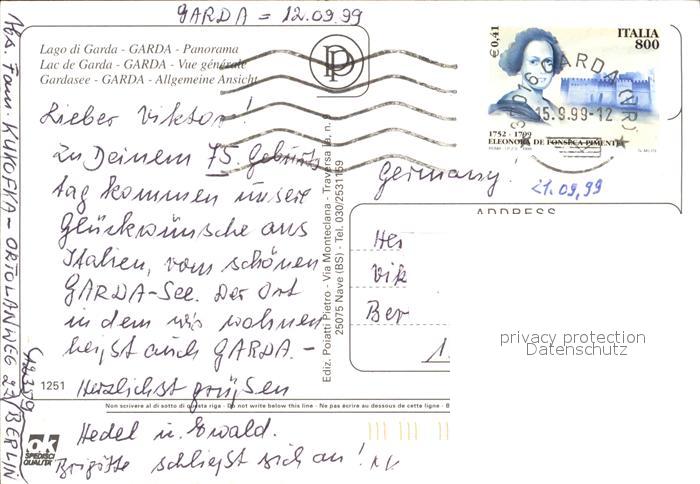 GARDA = 12.09.99
Lago di Garda - GARDA - Panorama
Lac de Garda - GARDA - Vue générale
Gardasee - GARDA - Allgemeine Ansicht
Lieber Viktor!
Zu Deinem 75. Geburts
tag kommen unsere
Glückwünsche aus
Italien, vom schönen
GARDA-See. Der Ort
in dem wir wohnen
heißt auch GARDA.-
Herzlichst grüßen
Hedel u. Ewald.
Brigitte schließt sich an!
Abs. Fam. KUKOFKA - ORTOLANWEG 27/BERLIN
12359
1251
Non scrivere al di sotto di questa riga - Do not write below this line - Ne pas écrire au dessous de cette ligne - B
ok
SPEDISCI
QUALITÀ
Ediz. Poiatti Pietro - Via Monteclana - Traversa I a. n. 9
25075 Nave (BS) - Tel. 030/2531159
P
€ 0,41
ITALIA
800
1752 - 1799
ELEONORA DE FONSECA PIMENTEL
37016 GARDA (VR)
15.9.99-12
Germany!
21.09.99
ADDRESS
Her
Vik
Ber
1
privacy protection
Datenschutz